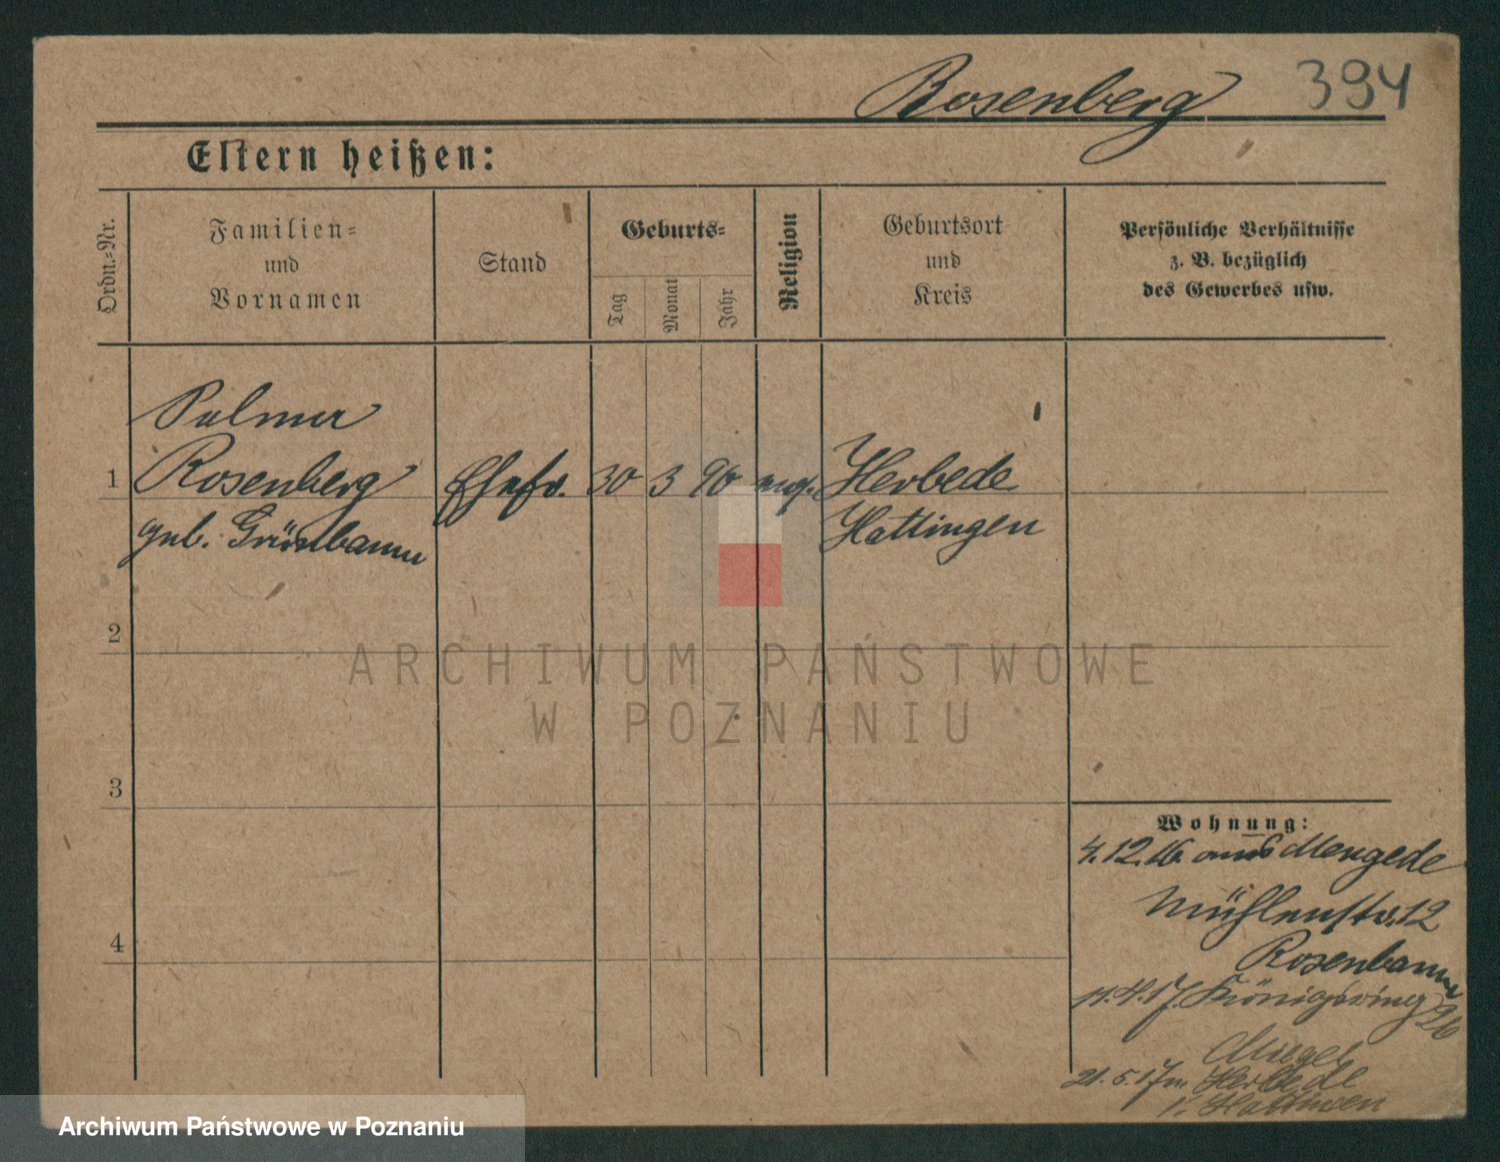 Rosenberg 394
Eltern heißen:
Ordn.-Nr.
Familien=
und
Vornamen
Stand
Geburts=
Tag
Monat
Jahr
Religion
Geburtsort
und
Kreis
Persönliche Verhältnisse
z. B. bezüglich
des Gewerbes usw.
Rosenberg
geb. Grünbaum
1
Ehefr. 30 3 90
Herbede
Hattingen
2
3
4
Wohnung:
4.12.16 aus Mengede
Mühlenstr. 12
Rosenbaum
11.4.17. Königsring 26
21.5.17 n. Herbede
Hattingen
ARCHIWUM PAŃSTWOWE
W POZNANIU
Archiwum Państwowe w Poznaniu